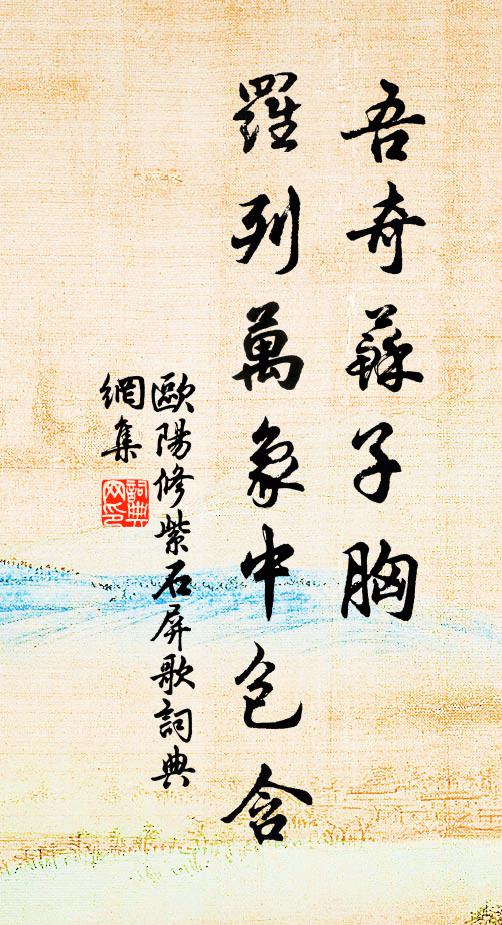 吾奇蘇子胸
羅列萬象中包含
歐陽修紫石屏歌詞典
網集
詞典網印